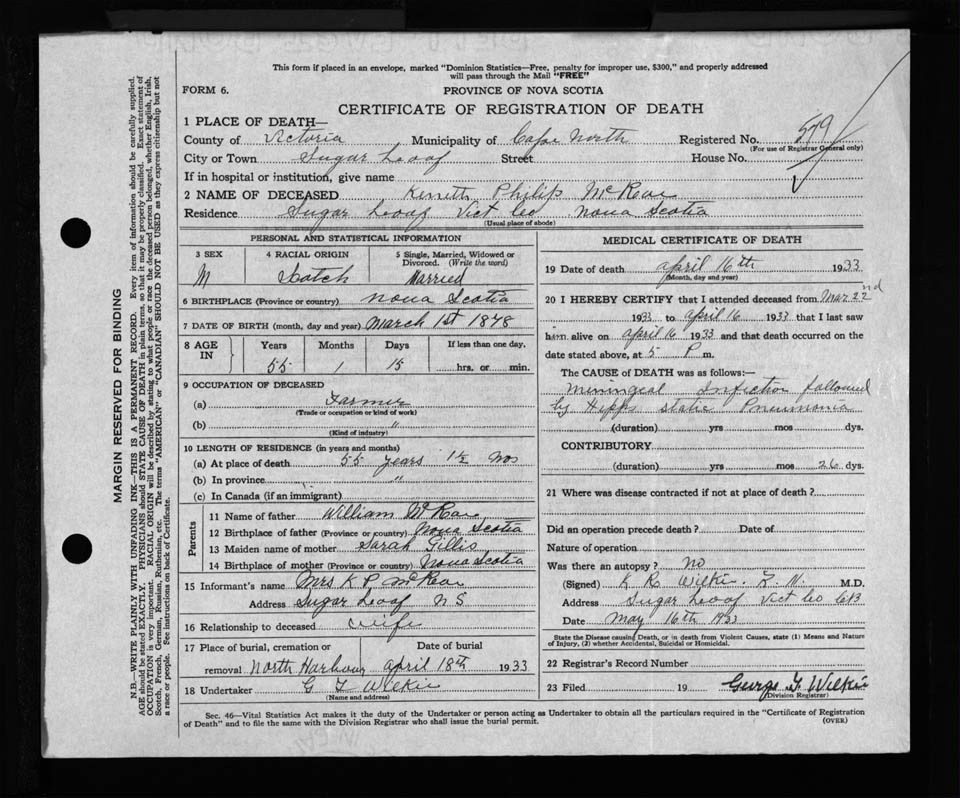 This form if placed in an envelope, marked "Dominion Statistics—Free, penalty for improper use, $300," and properly addressed
will pass through the Mail "FREE"
FORM 6.
PROVINCE OF NOVA SCOTIA
CERTIFICATE OF REGISTRATION OF DEATH
1 PLACE OF DEATH—
County of Victoria Municipality of Cape North Registered No. 579
(For use of Registrar General only)
City or Town Sugar Loaf Street House No.
If in hospital or institution, give name
2 NAME OF DECEASED Kenneth Philip McRae
Residence Sugar Loaf Vict Co Nova Scotia
(Usual place of abode)
PERSONAL AND STATISTICAL INFORMATION
3 SEX 4 RACIAL ORIGIN 5 Single, Married, Widowed or Divorced. (Write the word)
M Scotch Married
6 BIRTHPLACE (Province or country) Nova Scotia
7 DATE OF BIRTH (month, day and year) March 1st 1878
8 AGE IN Years Months Days If less than one day,
55 1 15 hrs. or min.
9 OCCUPATION OF DECEASED
(a) Farmer
(Trade or occupation or kind of work)
(b) "
(Kind of industry)
10 LENGTH OF RESIDENCE (in years and months)
(a) At place of death 55 years 1½ Mos
(b) In province "
(c) In Canada (if an immigrant)
Parents
11 Name of father William McRae
12 Birthplace of father (Province or country) Nova Scotia
13 Maiden name of mother Sarah Gillis
14 Birthplace of mother (Province or country) Nova Scotia
15 Informant's name Mrs K P McRae
Address Sugar Loaf N S
16 Relationship to deceased Wife
17 Place of burial, cremation or Date of burial
removal North Harbour April 18th 1933
18 Undertaker G F Wilkie
(Name and address)
MEDICAL CERTIFICATE OF DEATH
19 Date of death April 16th 1933
(Month, day and year)
20 I HEREBY CERTIFY that I attended deceased from Mar 22nd
1933 to April 16 1933 that I last saw
him alive on April 16 1933 and that death occurred on the
date stated above, at 5 P m.
The CAUSE of DEATH was as follows:—
Miningeal Infection followed
by Hippo static Pneumonia
(duration) yrs mos dys.
CONTRIBUTORY
(duration) yrs mos 26 dys.
21 Where was disease contracted if not at place of death?
Did an operation precede death? Date of
Nature of operation
Was there an autopsy? No
(Signed) K R Wilkie. M.D.
Address Sugar Loaf Vict Co CB
Date May 16th 1933
State the Disease causing Death, or in death from Violent Causes, state (1) Means and Nature
of Injury, (2) whether Accidental, Suicidal or Homicidal.
22 Registrar's Record Number
23 Filed 19 George F. Wilkie
(Division Registrar)
Sec. 46—Vital Statistics Act makes it the duty of the Undertaker or person acting as Undertaker to obtain all the particulars required in the "Certificate of Registration
of Death" and to file the same with the Division Registrar who shall issue the burial permit.
(OVER)
MARGIN RESERVED FOR BINDING
N.B.—WRITE PLAINLY WITH UNFADING INK—THIS IS A PERMANENT RECORD. Every item of information should be carefully supplied.
AGE should be stated EXACTLY. PHYSICIANS should STATE CAUSE OF DEATH in plain terms, so that it may be properly classified. Exact statement of
OCCUPATION is very important. RACIAL ORIGIN will be described by stating to what people or race the deceased person belonged, whether English, Irish,
Scotch, French, German, Russian, Ruthenian, etc. The terms "AMERICAN" or "CANADIAN" SHOULD NOT BE USED as they express citizenship but not
a race or people. See instructions on back of Certificate.